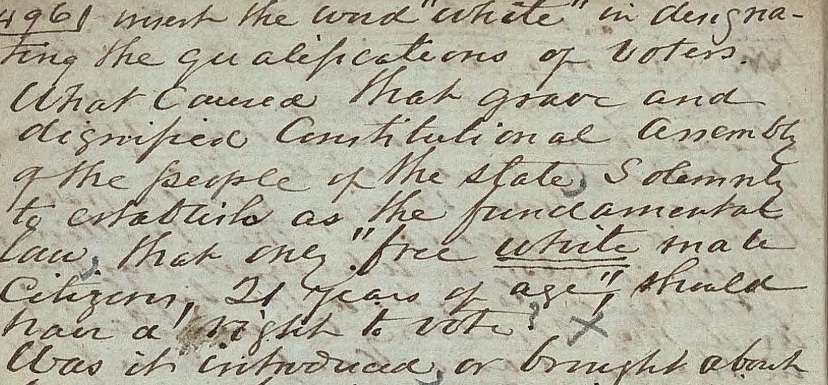 496) insert the word "white" in designa-
ting the qualifications of voters.
What caused that grave and
dignified Constitutional Assembly
of the people of the state, Solemnly
to establish as the fundamental
law, that only "free white male
Citizens, 21 years of age", should
have a right to vote? X
Was it introduced, or brought about